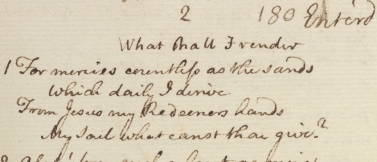 2 180 Enter'd
What shall I render
1 For mercies countless as the sands
Which daily I derive
From Jesus my Redeemers hands
My Soul what canst thou give?